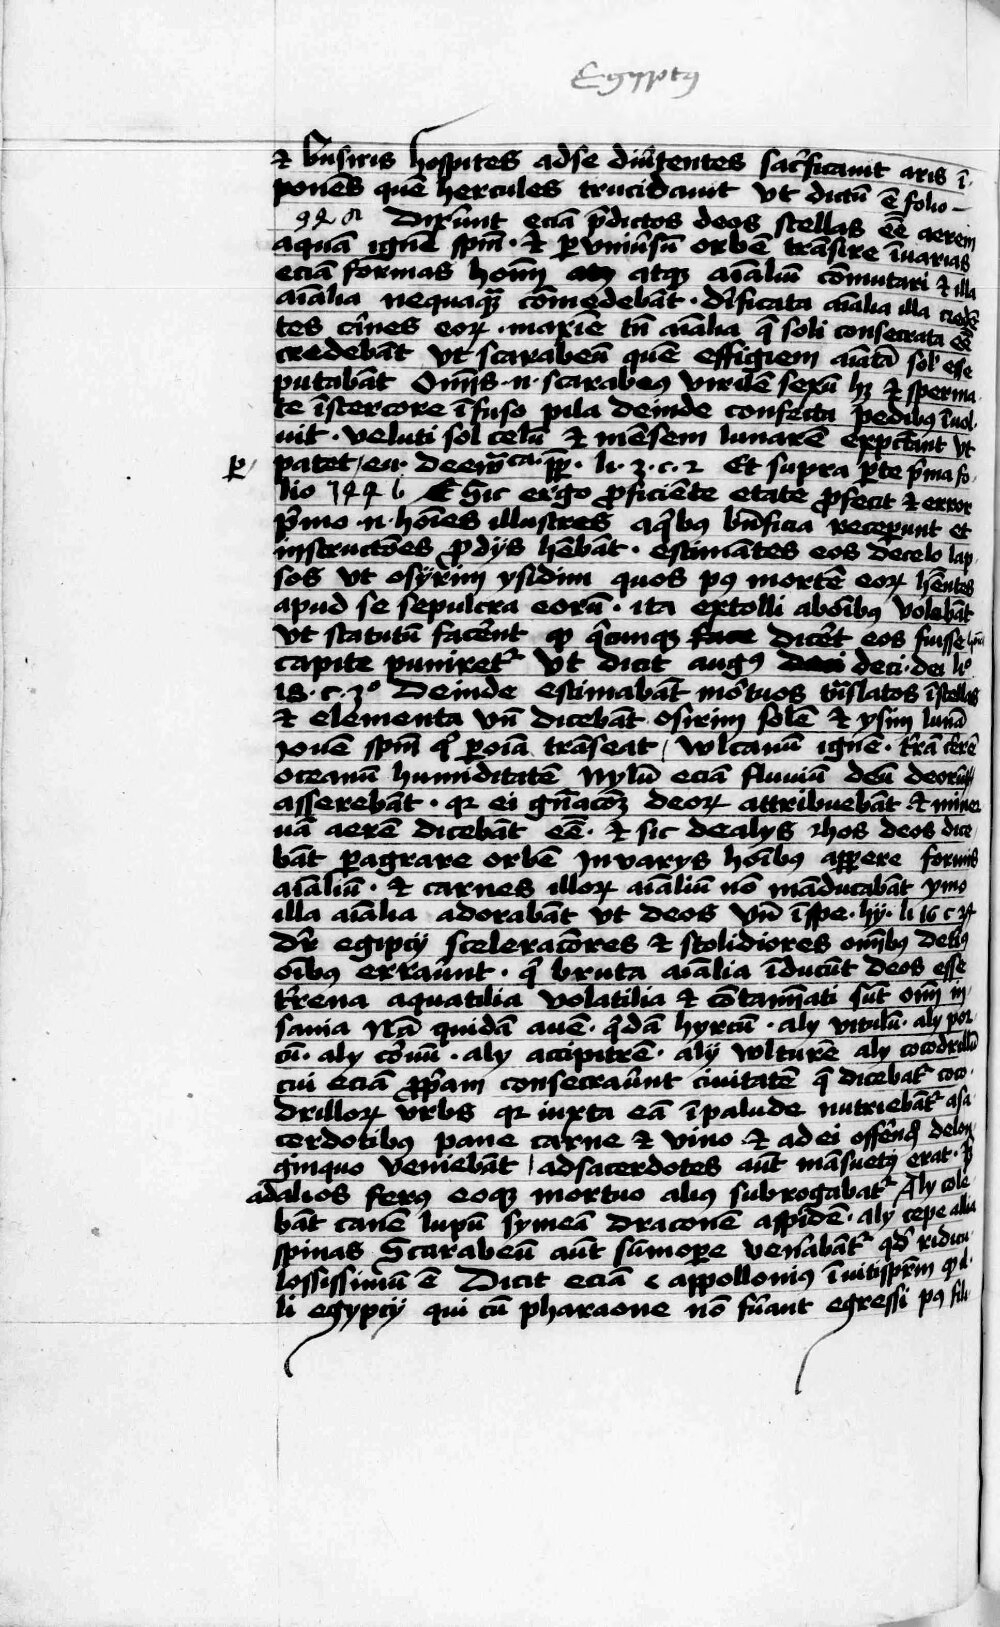 Egyptꝰ
⁊ busiris hospites adse diu̾tentes sac̾ficauit aris ī
ponēs quē hercules trucidauit vt dictū ē folio
Dixer̄unt eciā p̄dictos deos stellas ēē aerem
aquā ignē sp̄m · Et ꝑ vniu̾sū orbē trāsire ī varias
eciā formas hoīm atqꝫ aīaliū cōmutari ⁊ illa
aīalia nequaqꝫ cōmedebāt · deificata aīalia illa credē
tes cīnes eoꝝ · maxīe tn̄ aīalia q̄ soli consecrata ēē
credebāt vt scarabeū quē effigiem aīatā sol̾ esse
putabāt Om̄is · n · scarabeꝰ virilē sexū hꝫ ⁊ sperma
te ī stercore īfuso pila deinde confecta pedibꝰ īuol
uit · veluti sol celū ⁊ mēsem lunarē expectant vt
patet / eu · de ew̄ca · p̄p · li · 3 · c · 2 Et supra ꝑte p̄ma fo
lio 1442 b Sic ergo ꝓficiēte etate ꝓfecit ⁊ error
p̄mo · n · hoīes illustres a qͥbꝰ bn̄ficia receperunt et
instructōes ꝓ dijs hēbāt · estimātes eos de celo lap
sos vt osÿrim ysidim quos pꝰ mortē eoꝝ hn̄tes
apud se sepulcra eorū · ita extolli ab oībꝰ volebāt
vt statutū facer̄ent qꝫ qͥcunqꝫ dicer̄t eos fuisse
capite puniretᷣ vt dicit augꝰ de ci · dei liº
18 · c · 3º Deinde estimabāt mōrtuos tn̄slatos ī stellas
⁊ elementa vn̄ dicebāt osirim solē ⁊ ysim lunā
Jouē sp̄m qͥ ꝑ oīa trāseat / wlcanū ignē · tr̄ā cererē
oceanū humiditatē Nylū eciā fluuiū deū deorū
asserebāt · qr ei gn̄acōꝫ deoꝝ attribuebāt ⁊ miner
uā aerē dicebāt ēē · ⁊ sic de alys ⁊ hos deos dice
bāt ꝑagrare orbē in varys hoībꝰ appere formis
aīaliū · ⁊ carnes illoꝝ aīaliū nō māducabāt ymo
illa aīalia adorabāt vt deos vn̄ ī spe · hy · li 16 c
dr̄ egiptij sceleracōres ⁊ stolidiores om̄ibꝰ
oībꝰ erraūnt · qͥ bruta aīalia īducūt deos esse
tr̄rena aquatilia volatilia ⁊ cōtamīati sūt om̄i in
sania Nā quidā auē · qͥdā hyrcū · aly vitulū · aly por
cū · aly cōruū · aly accipitrē · alij wlturē aly cocodrillū
cui eciā ꝓp̄am consecraūnt ciuitatē q̄ dicebatᷣ coco
drilloꝝ vrbs qr iuxta eā ī palude nutriebātᷣ a sa
cerdotibꝰ pane carne ⁊ vino ⁊ ad ei offēnd̾ de lon
ginquo veniebāt / ad sacerdotes aūt māsuetꝰ erat · sꝫ
ad alios ferꝰ eoqꝫ mortuo aliꝰ subrogabatᷣ Aly cole
bāt canē lupū symeā draconē aspidē · aly cepe alia
spinas Scarabeū aūt sūmope ven̄abātᷣ qd̾ ridicu
losissimū ē Dicit eciā c appollonius ī
li egyptij qui cū pharaone nō fūant egressi pꝰ fili